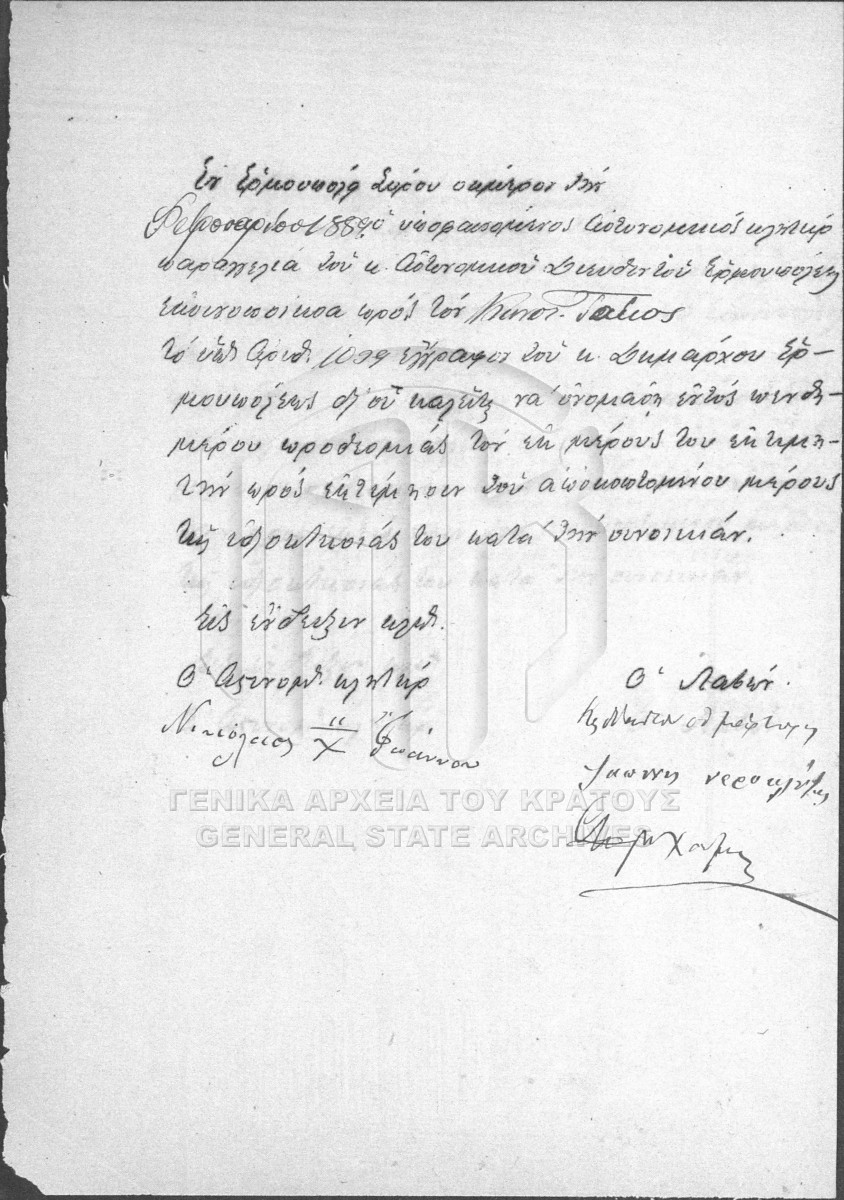 Ἐν Ἑρμουπόλῃ Σύρου σήμερον τὴν
Φεβρουαρίου 188 ὁ ὑποφαινόμενος Ἀστυνομικός κλητήρ
παραγγελίᾳ τοῦ κ. Ἀστυνομικοῦ Διευθυντοῦ Ἑρμουπόλεως
ἐκοινοποίησα πρός τόν
τό ὑπ' ἀριθ. ἔγγραφον τοῦ κ. Δημάρχου Ἑρ-
μουπόλεως δι' οὗ καλεῖται νά ὀνομάσῃ ἐντός πενθη-
μέρου προθεσμίας τόν ἐκ μέρους του ἐκτιμη-
τήν πρός ἐκτίμησιν τοῦ ἀποκοπτομένου μέρους
τῆς ἰδιοκτησίας του κατά τήν συνοικίαν.
Εἰς ἔνδειξιν κλπ.
Ὁ Ἀστυνομ. κλητήρ
Ὁ Λαβών
Νικόλαος Ἰωάννου
Ἰωάννης
ΓΕΝΙΚΑ ΑΡΧΕΙΑ ΤΟΥ ΚΡΑΤΟΥΣ
GENERAL STATE ARCHIVES